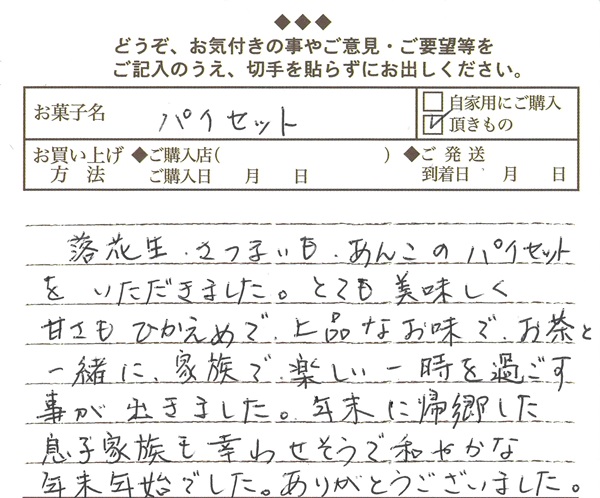 ◆◆◆
どうぞ、お気付きの事やご意見・ご要望等を
ご記入のうえ、切手を貼らずにお出しください。
お菓子名 パイセット
□自家用にご購入
☑頂きもの
お買い上げ方法 ◆ご購入店( ) ◆ご発送
ご購入日 月 日 到着日 月 日
落花生・さつまいも・あんこのパイセット
をいただきました。とても美味しく
甘さもひかえめで、上品なお味で、お茶と
一緒に、家族で楽しい一時を過ごす
事が出きました。年末に帰郷した
息子家族も幸わせそうで和やかな
年末年始でした。ありがとうございました。